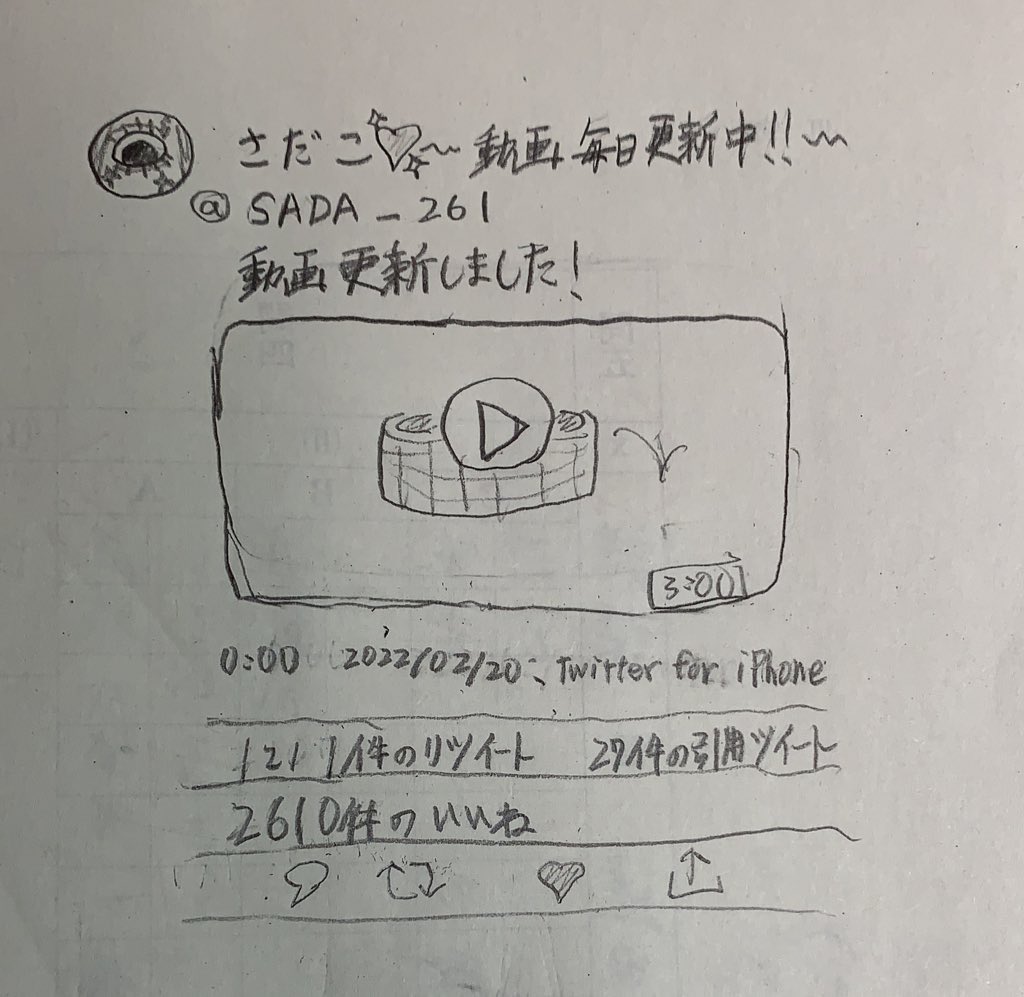 さだこ♡〜動画毎日更新中!!〜
@SADA_261
動画更新しました!
3:00
0:00 2022/02/20、Twitter for iPhone
1211件のリツイート 27件の引用ツイート
2610件のいいね